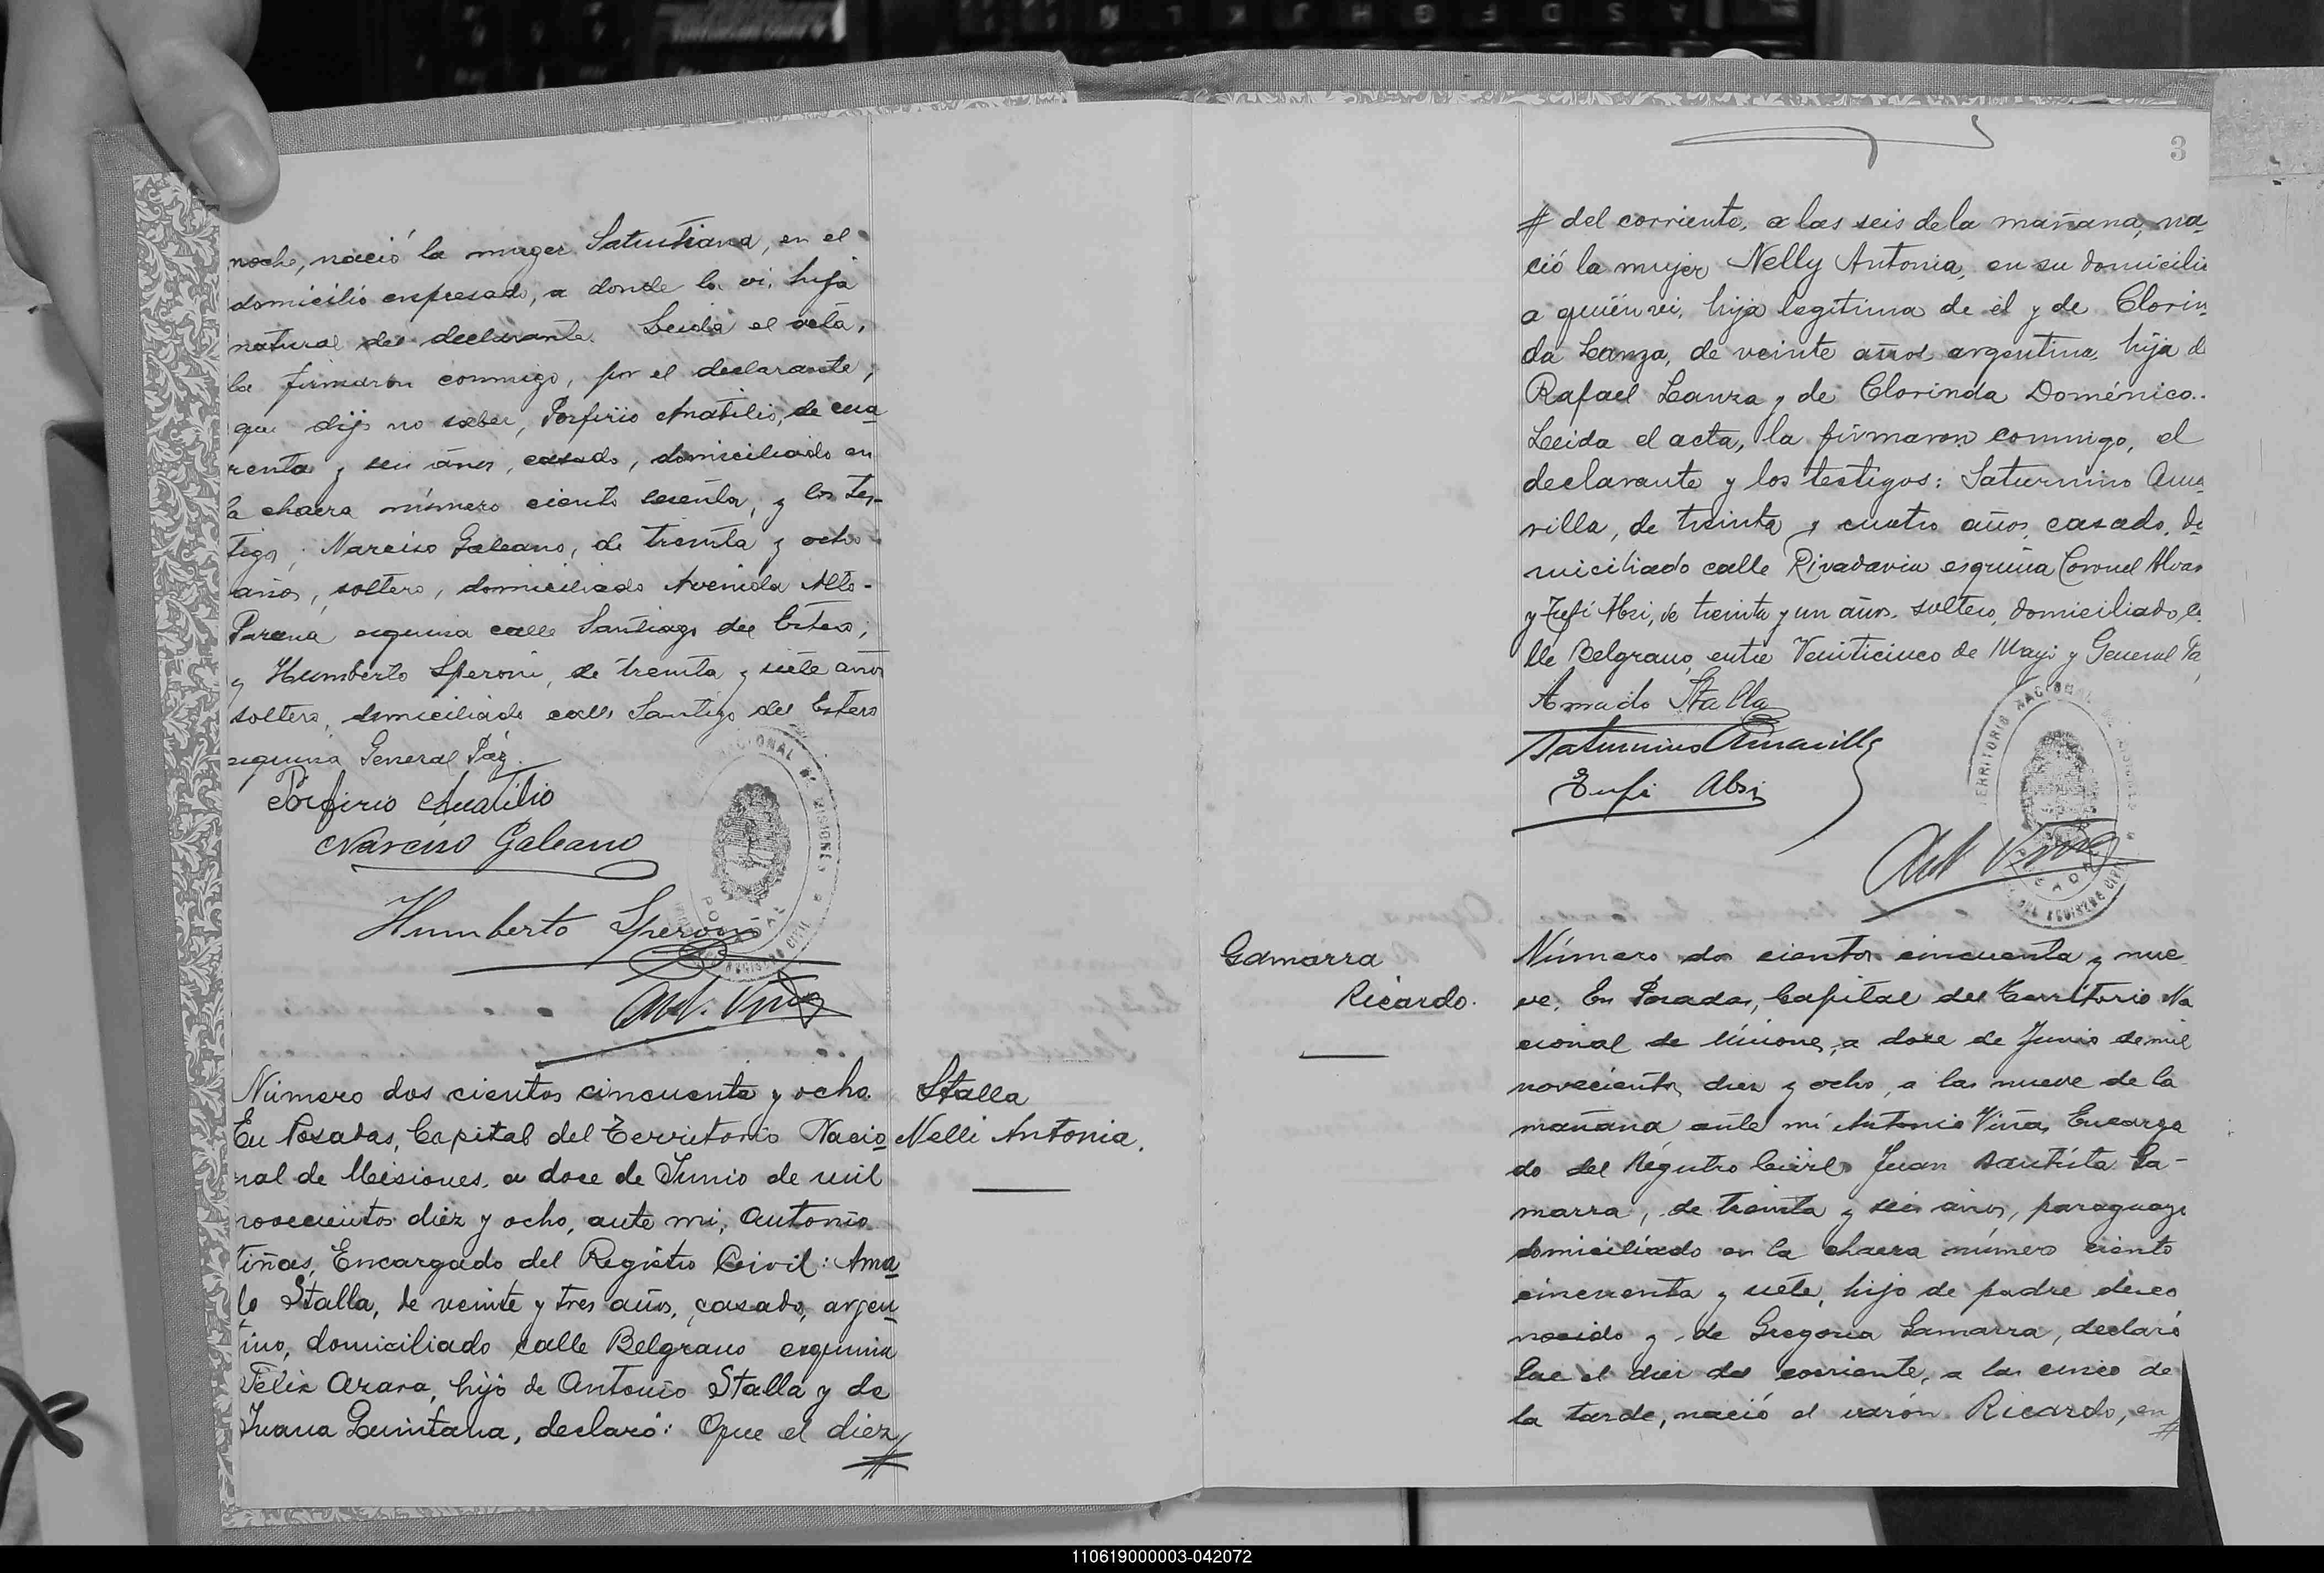 noche, nació la muger Saturtiana, en el
domicilio expresado, a donde la vi, hija
natural del declarante. Leida el acta,
la firmaron conmigo, por el declarante,
que dijo no saber, Porfirio Anatilio, de cua
renta y seis años, casado, domiciliado en
la chacra número ciento sesenta, y los tes-
tigos, Narciso Galeano, de treinta y ocho
años, soltero, domiciliado Avenida Alto-
Parana esquina calle Santiago del Estero;
y Humberto Speroni, de treinta y siete años
soltero, domiciliado calle Santigo del Estero
esquina General Páz.
Porfirio Anatilio
Narciso Galeano
Humberto Speroni
Ant. Viñas
Número dos cientos cincuenta y ocho
En Posadas, Capital del Territorio Nacio
nal de Misiones, a doce de Junio de mil
novecientos diez y ocho, ante mi, Antonio
Viñas, Encargado del Registro Civil: Ama
do Stalla, de veinte y tres años, casado, argen
tino, domiciliado calle Belgrano esquina
Félix Azara, hijo de Antonio Stalla y de
Juana Quintana, declaró: Que el diez
#
Stalla
Nelli Antonia.
3
# del corriente, a las seis de la mañana, na
ció la mujer Nelly Antonia, en su domicilio
a quién vi, hija legitima de él y de Clorin
da Lanza, de veinte años argentina, hija d
Rafael Lanza y de Clorinda Doménico.
Leida el acta, la firmaron conmigo, el
declarante y los testigos: Saturnino Ama
rilla, de treinta y cuatro años, casado, do
miciliado calle Rivadavia esquina Coronel Alvar
y Tufi Absi, de treinta y un años, soltero, domiciliado ca
lle Belgrano, entre Veinticinco de Mayo y General Pa
Amado Stalla
Saturnino Amarilla
Tufi Absi
Ant Viñas
TERRITORIO NACIONAL DE MISIONES
Gamarra
Ricardo.
Número dos cientos cincuenta y nue
ve. En Posadas, Capital del Territorio Na
cional de Misiones, a doce de Junio de mil
novecientos diez y ocho, a las nueve de la
mañana ante mi Antonio Viñas, Encarga
do del Registro Civil, Juan Bautista Ga-
marra, de treinta y seis años, paraguayo
domiciliado en la chacra número ciento
cincuenta y siete, hijo de padre desco
nocido y de Gregoria Gamarra, declaró
Que el diez del corriente, a las cinco de
la tarde, nació el varón Ricardo, en
#
110619000003-042072